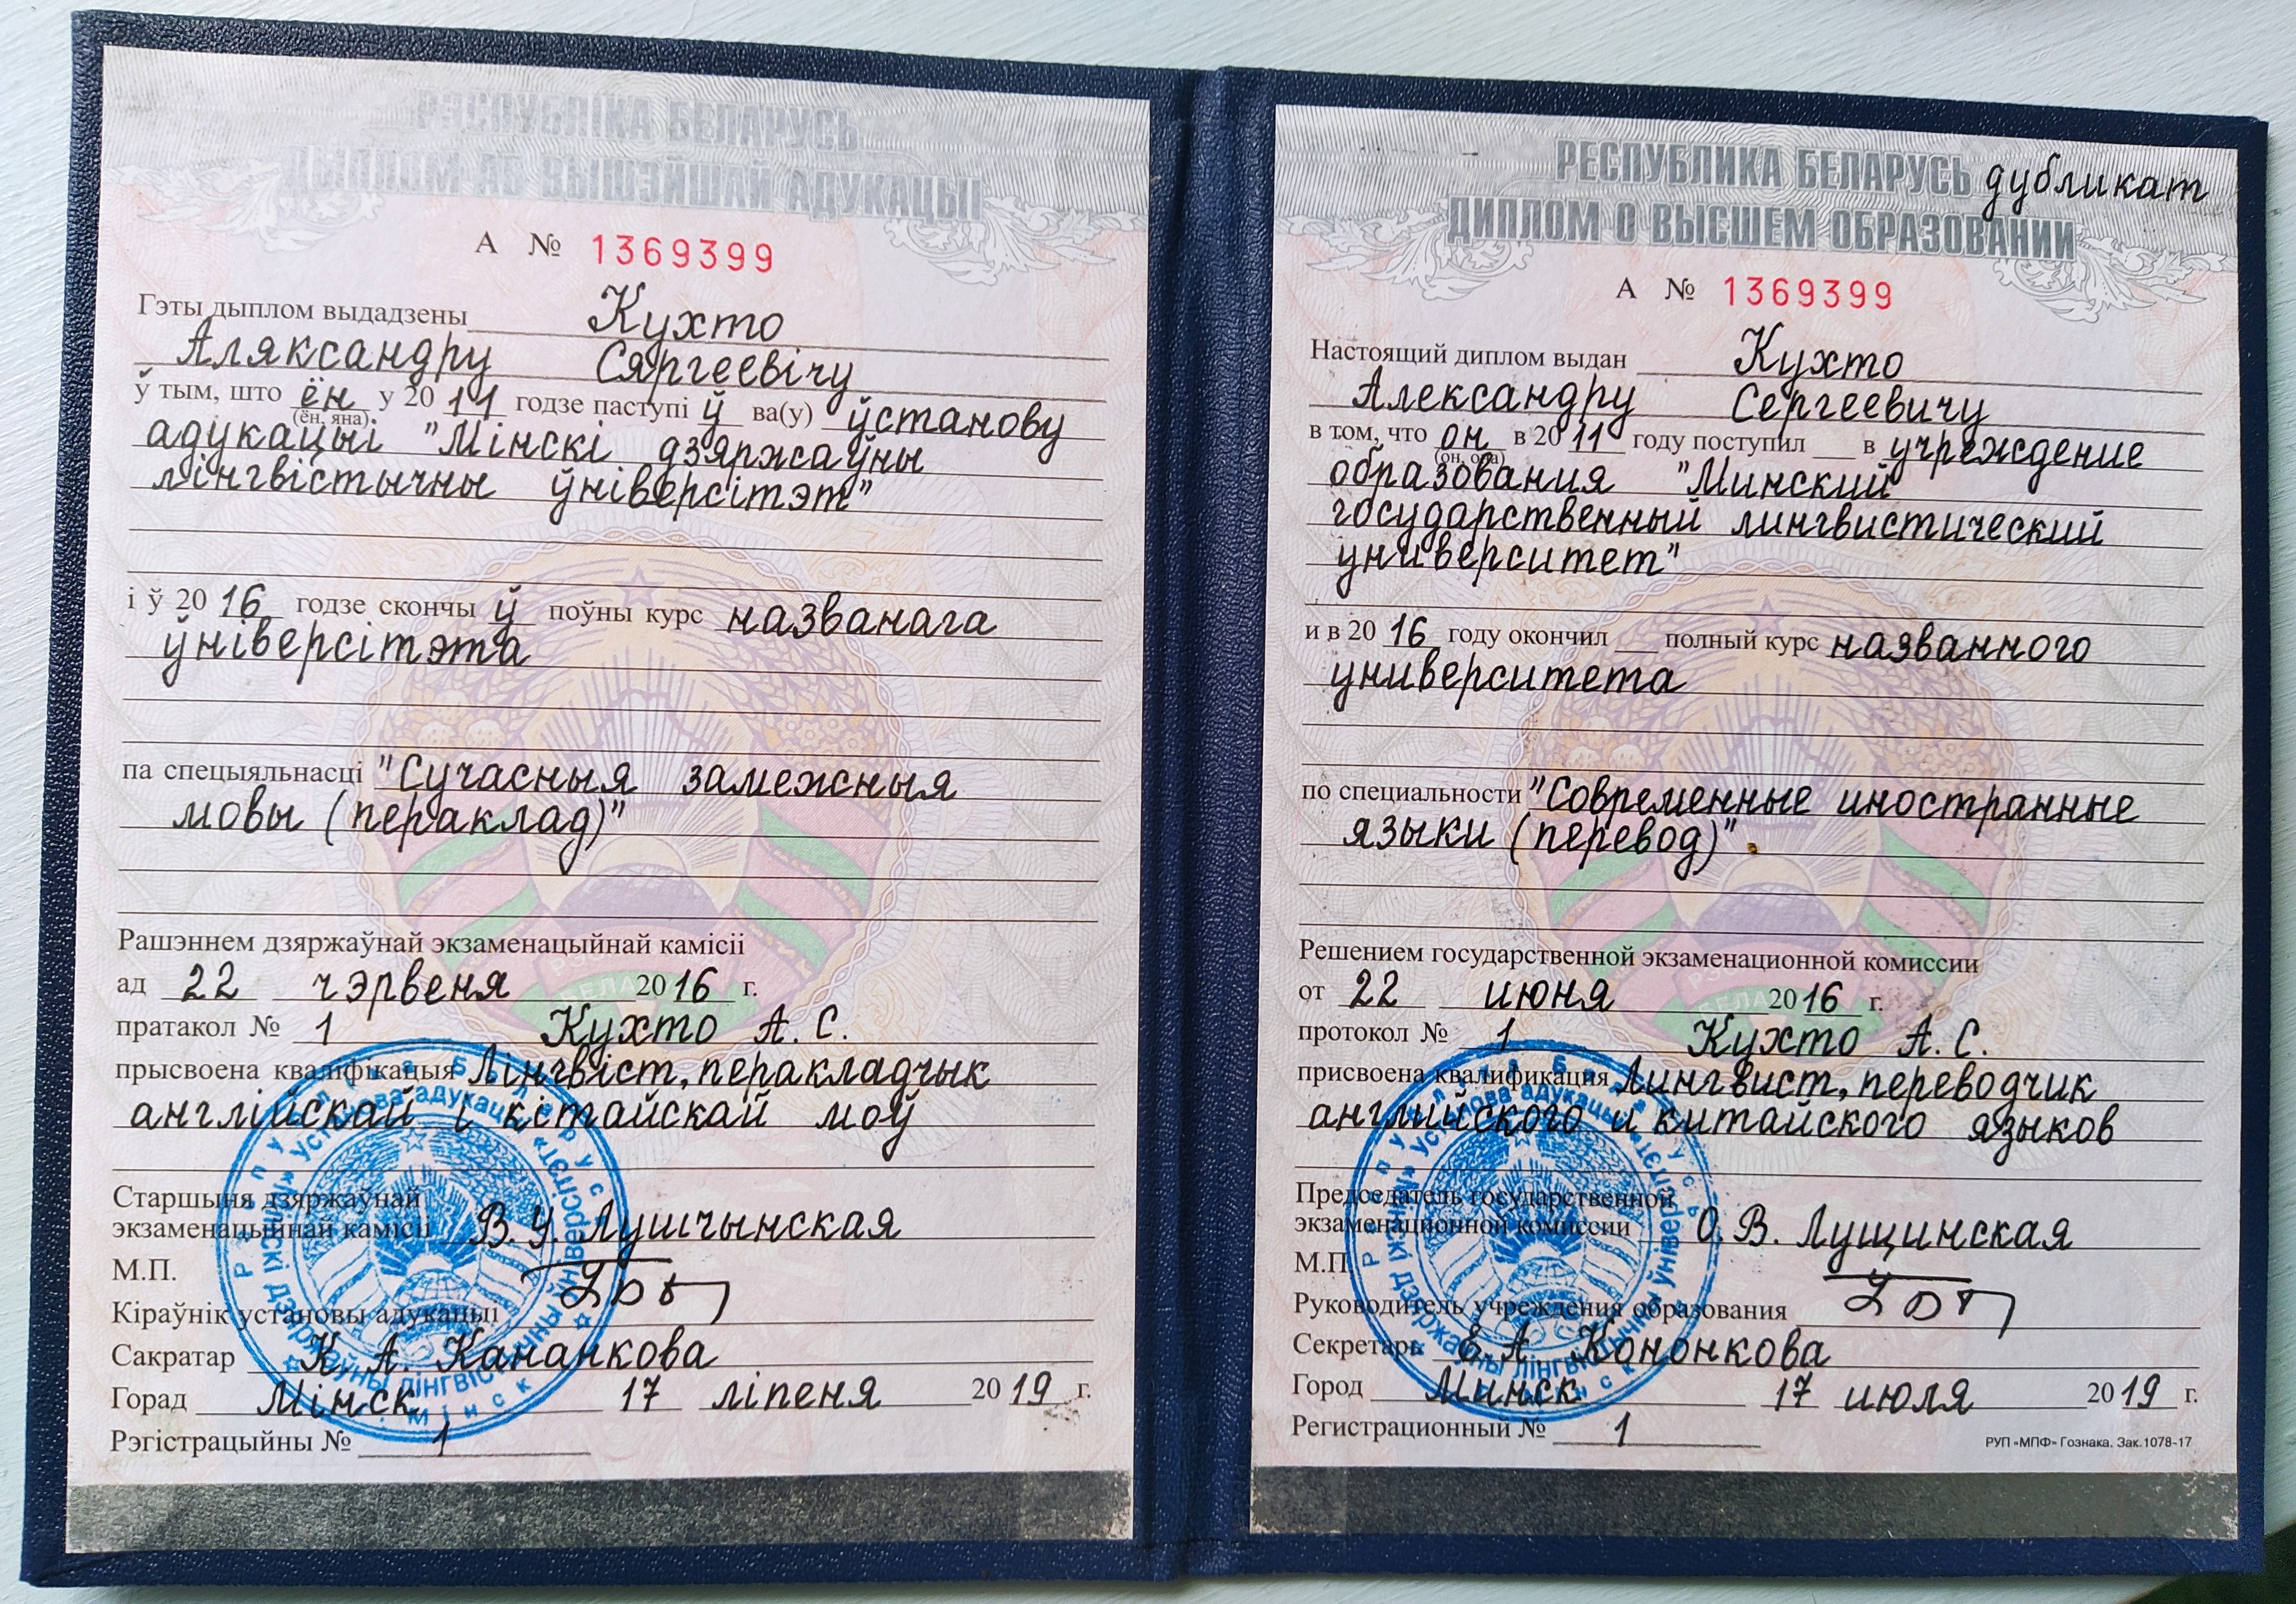 РЭСПУБЛІКА БЕЛАРУСЬ
ДЫПЛОМ АБ ВЫШЭЙШАЙ АДУКАЦЫІ
А № 1369399
Гэты дыплом выдадзены Кухто
Аляксандру Сяргеевічу
ў тым, што ён у 2011 годзе паступі ў ва(у) ўстанову
(ён, яна)
адукацыі "Мінскі дзяржаўны
лінгвістычны ўніверсітэт"
і ў 2016 годзе скончы ў поўны курс названага
ўніверсітэта
па спецыяльнасці "Сучасныя замежныя
мовы (пераклад)"
Рашэннем дзяржаўнай экзаменацыйнай камісіі
ад 22 чэрвеня 2016 г.
пратакол № 1 Кухто А. С.
прысвоена кваліфікацыя Лінгвіст, перакладчык
англійскай і кітайскай моў
Старшыня дзяржаўнай
экзаменацыйнай камісіі В. У. Лушчынская
М.П.
Кіраўнік установы адукацыі
Сакратар К. А. Кананкова
Горад Мінск 17 ліпеня 2019 г.
Рэгістрацыйны № 1
Рэспубліка Беларусь
Установа адукацыі «Мінскі дзяржаўны лінгвістычны ўніверсітэт»
г. Мінск
РЕСПУБЛИКА БЕЛАРУСЬ дубликат
ДИПЛОМ О ВЫСШЕМ ОБРАЗОВАНИИ
А № 1369399
Настоящий диплом выдан Кухто
Александру Сергеевичу
в том, что он в 2011 году поступил в учреждение
(он, она)
образования "Минский
государственный лингвистический
университет"
и в 2016 году окончил полный курс названного
университета
по специальности "Современные иностранные
языки (перевод)"
Решением государственной экзаменационной комиссии
от 22 июня 2016 г.
протокол № 1 Кухто А. С.
присвоена квалификация Лингвист, переводчик
английского и китайского языков
Председатель государственной
экзаменационной комиссии О. В. Лущинская
М.П.
Руководитель учреждения образования
Секретарь Е. А. Кононкова
Город Минск 17 июля 2019 г.
Регистрационный № 1
РУП «МПФ» Гознака. Зак.1078-17
Рэспубліка Беларусь
Установа адукацыі «Мінскі дзяржаўны лінгвістычны ўніверсітэт»